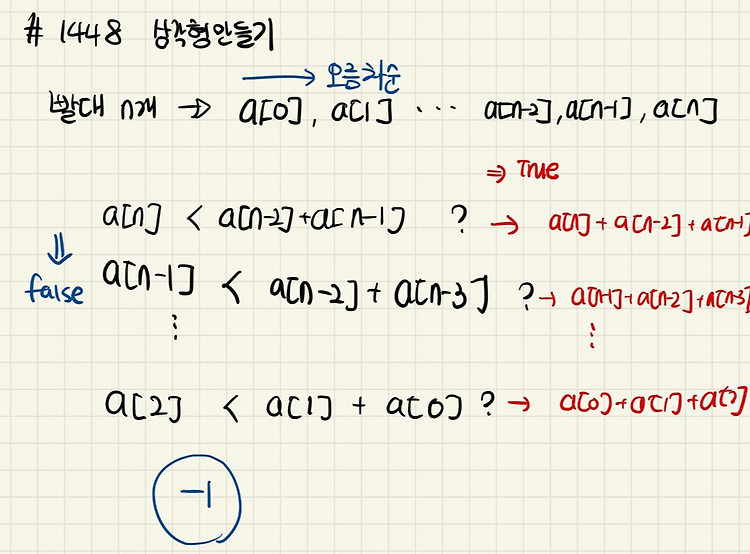 # 1448 삼각형만들기
→ 오름차순
빨대 n개 → a[0], a[1] ... a[n-2], a[n-1], a[n]
⇒ True
a[n] < a[n-2]+a[n-1] ? → a[n]+a[n-2]+a[n-1]
⇓
false a[n-1] < a[n-2]+a[n-3] ? → a[n-1]+a[n-2]+a[n-3]
⋮ ⋮
a[2] < a[1] + a[0] ? → a[0]+a[1]+a[2]
-1